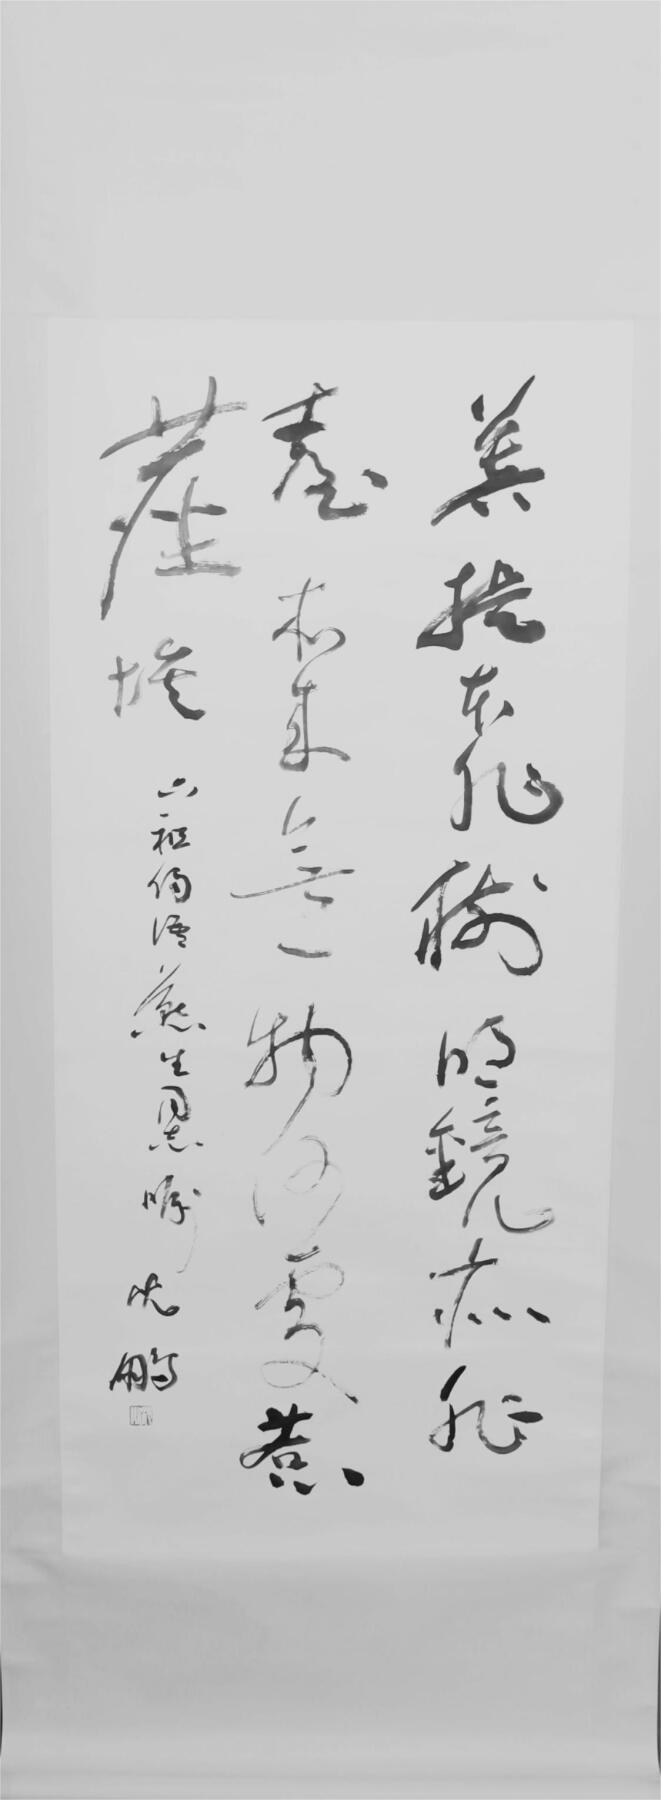 菩提本非樹明鏡亦非
臺本来無一物何處惹
塵埃
六祖偈語燕生同志嘱沈鵬